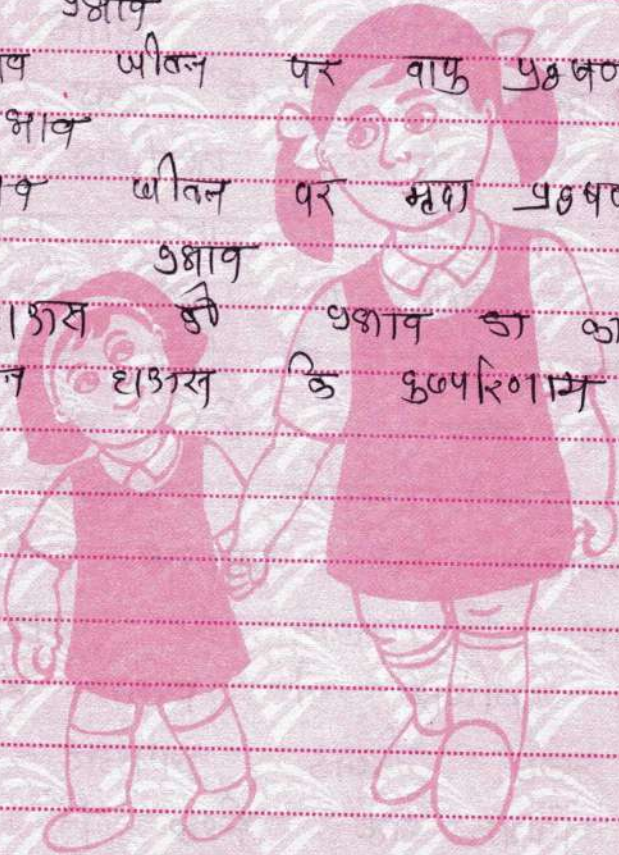 प्रभाव
व जीवन पर वायु प्रदूषण
भाव
व जीवन पर मृदा प्रदूषण
प्रभाव
हाऊस की प्रभाव का का
न हाऊस कि दुष्परिणाम